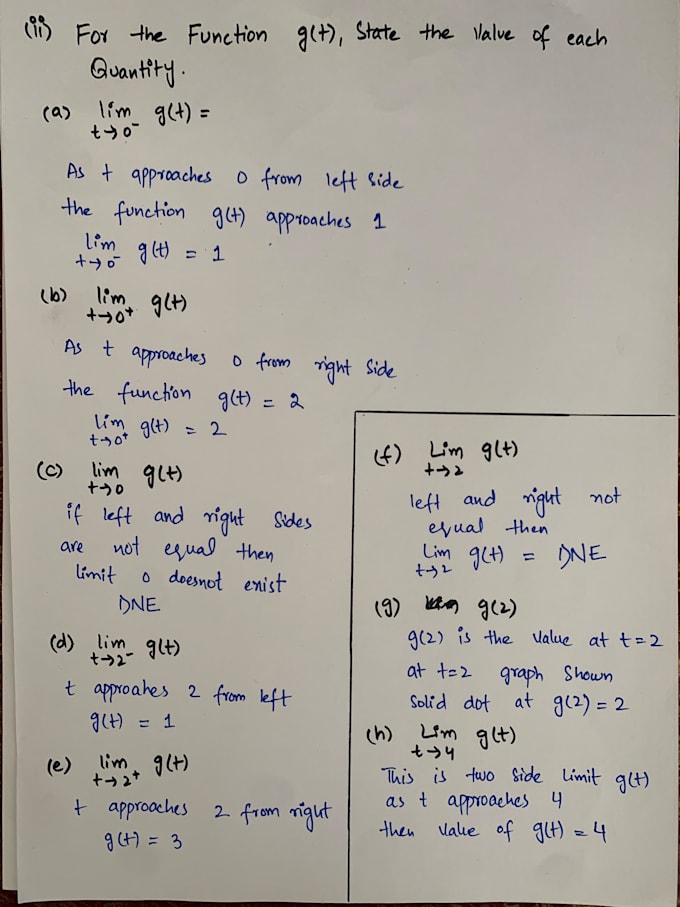 (ii) For the Function g(t), State the Value of each
Quantity.
(a) lim t→0⁻ g(t) =
As t approaches 0 from left side
the function g(t) approaches 1
lim t→0⁻ g(t) = 1
(b) lim t→0⁺ g(t)
As t approaches 0 from right side
the function g(t) = 2
lim t→0⁺ g(t) = 2
(c) lim t→0 g(t)
if left and right sides
are not equal then
limit 0 doesnot exist
DNE
(d) lim t→2⁻ g(t)
t approahes 2 from left
g(t) = 1
(e) lim t→2⁺ g(t)
t approaches 2 from right
g(t) = 3
(f) Lim t→2 g(t)
left and right not
equal then
Lim t→2 g(t) = DNE
(g) g(2)
g(2) is the value at t=2
at t=2 graph shown
solid dot at g(2) = 2
(h) Lim t→4 g(t)
This is two side limit g(t)
as t approaches 4
then value of g(t) = 4